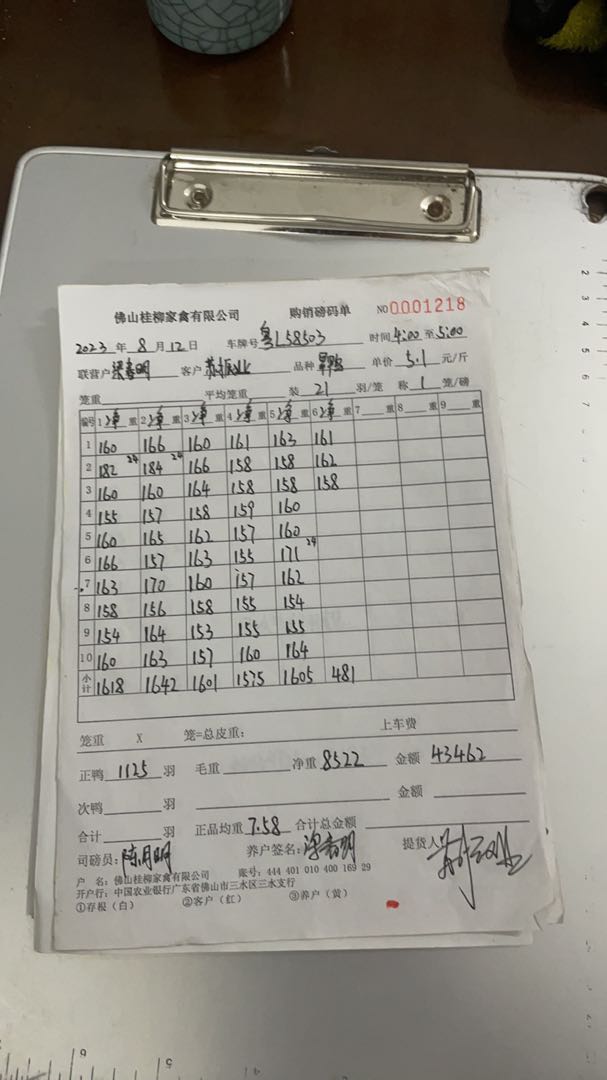 佛山桂柳家禽有限公司 购销磅码单 NO 0001218
2023 年 8 月 12 日 车牌号 粤L58503 时间 4:00 至 5:00
联营户 客户 苏振业 品种 单价 5.1 元/斤
笼重 平均笼重 装 21 羽/笼 称 1 笼/磅
编号 1 净 重 2 净 重 3 净 重 4 净 重 5 净 重 6 净 重 7 重 8 重 9 重
1 160 166 160 161 163 161
2 182 24 184 24 166 158 158 162
3 160 160 164 158 158 158
4 155 157 158 159 160
5 160 165 162 157 160
6 166 157 163 155 171 24
7 163 170 160 157 162
8 158 156 158 155 154
9 154 164 153 155 155
10 160 163 157 160 164
小计 1618 1642 1601 1575 1605 481
笼重 X 笼=总皮重: 上车费
正鸭 1125 羽 毛重 净重 8522 金额 43462
次鸭 羽 金额
合计 羽 正品均重 7.58 合计总金额
司磅员: 陈月明 养户签名: 提货人
户 名: 佛山桂柳家禽有限公司 账号: 444 401 010 400 169 29
开户行: 中国农业银行广东省佛山市三水区三水支行
①存根（白） ②客户（红） ③养户（黄）